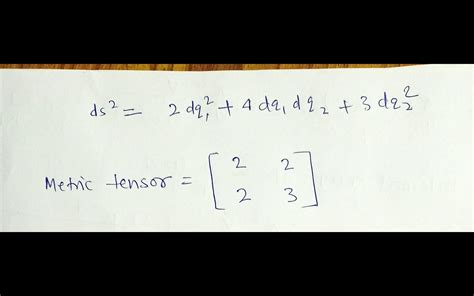 ds² = 2 dq₁² + 4 dq₁ dq₂ + 3 dq₂²
Metric tensor = [ 2 2
2 3 ]